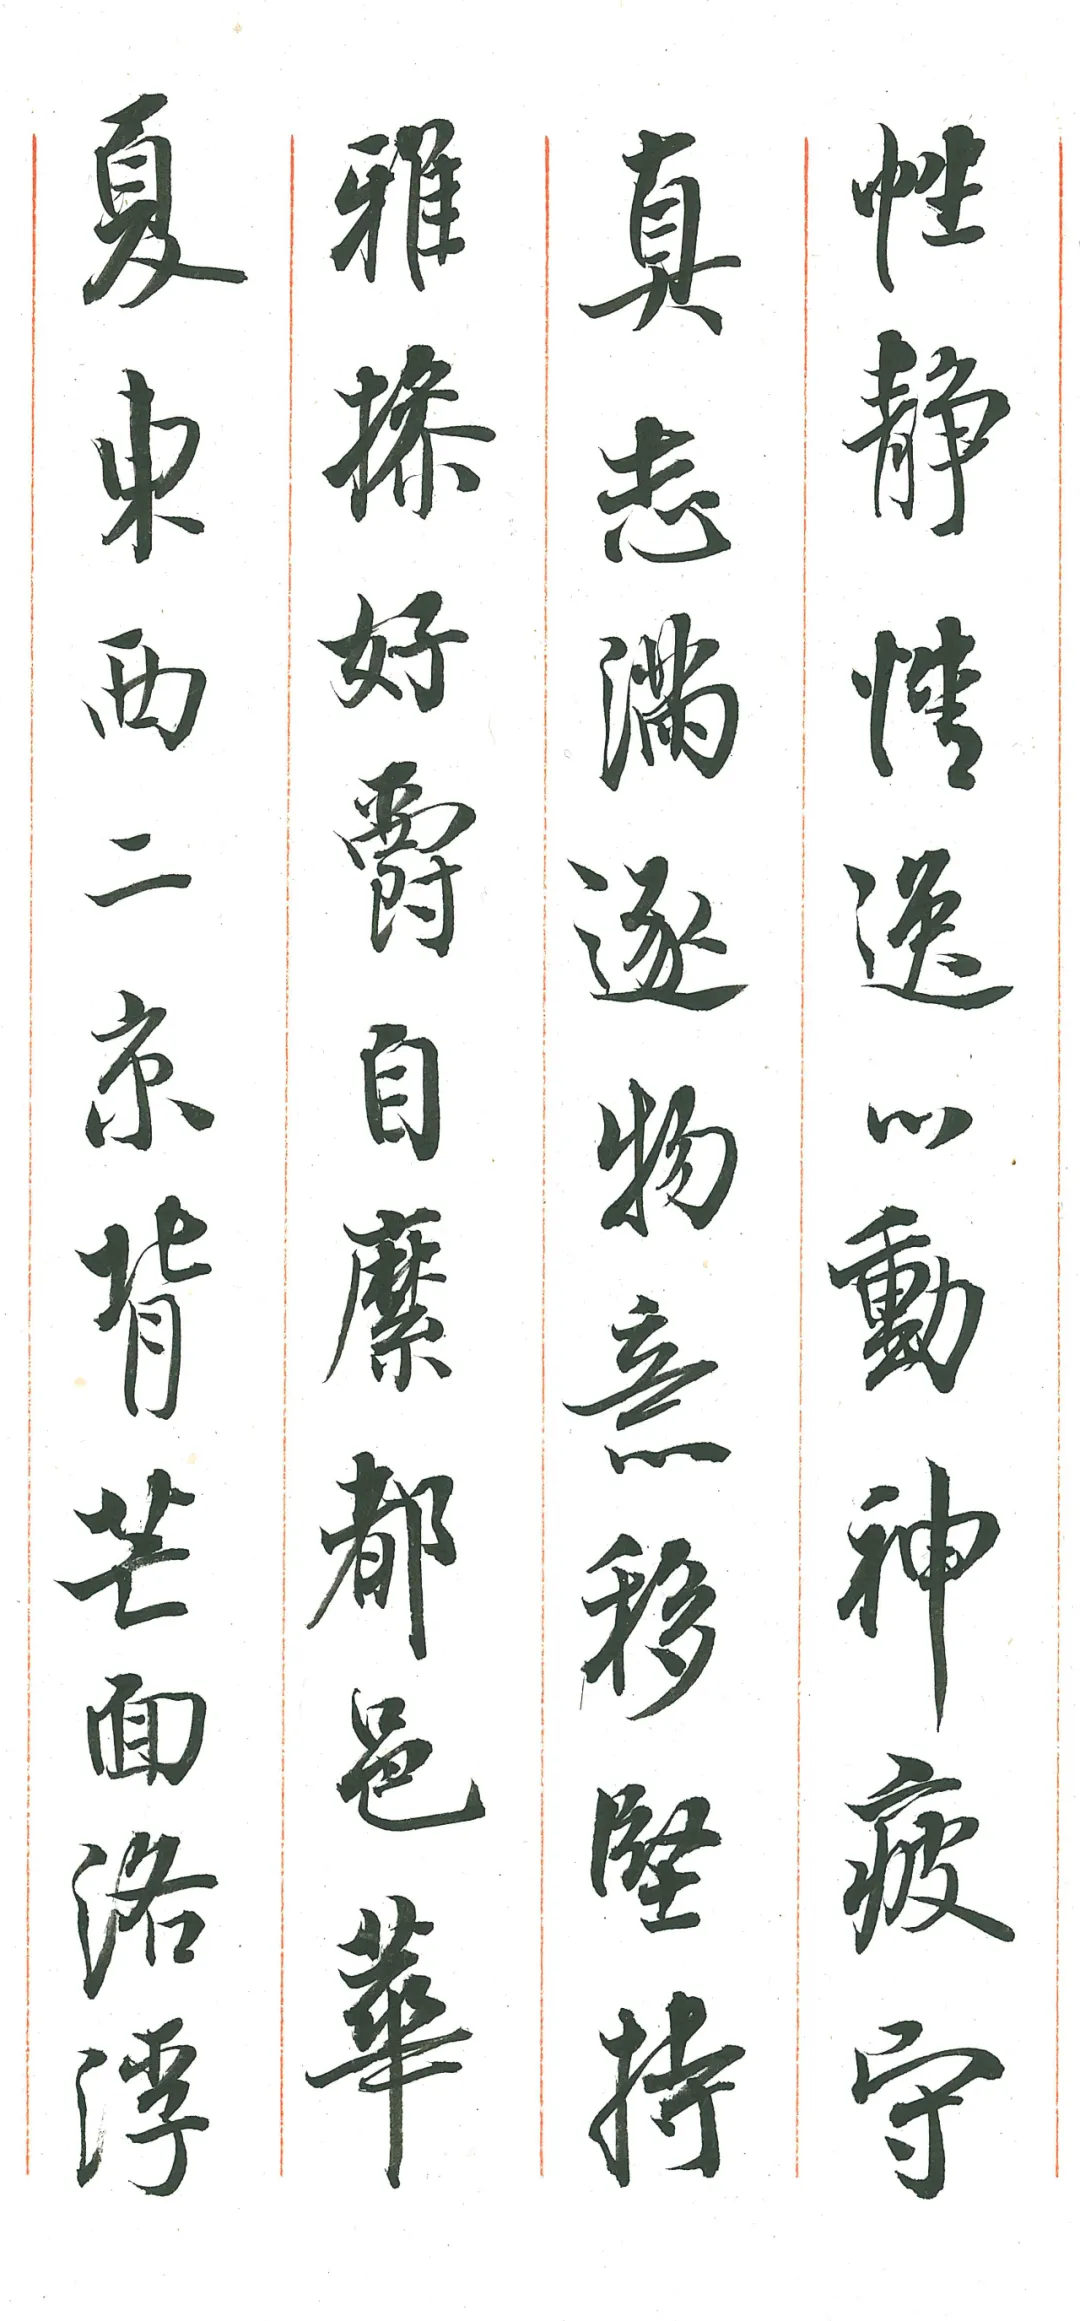 性静情逸心動神疲守
真志滿逐物意移堅持
雅操好爵自縻都邑華
夏東西二京背芒面洛浮